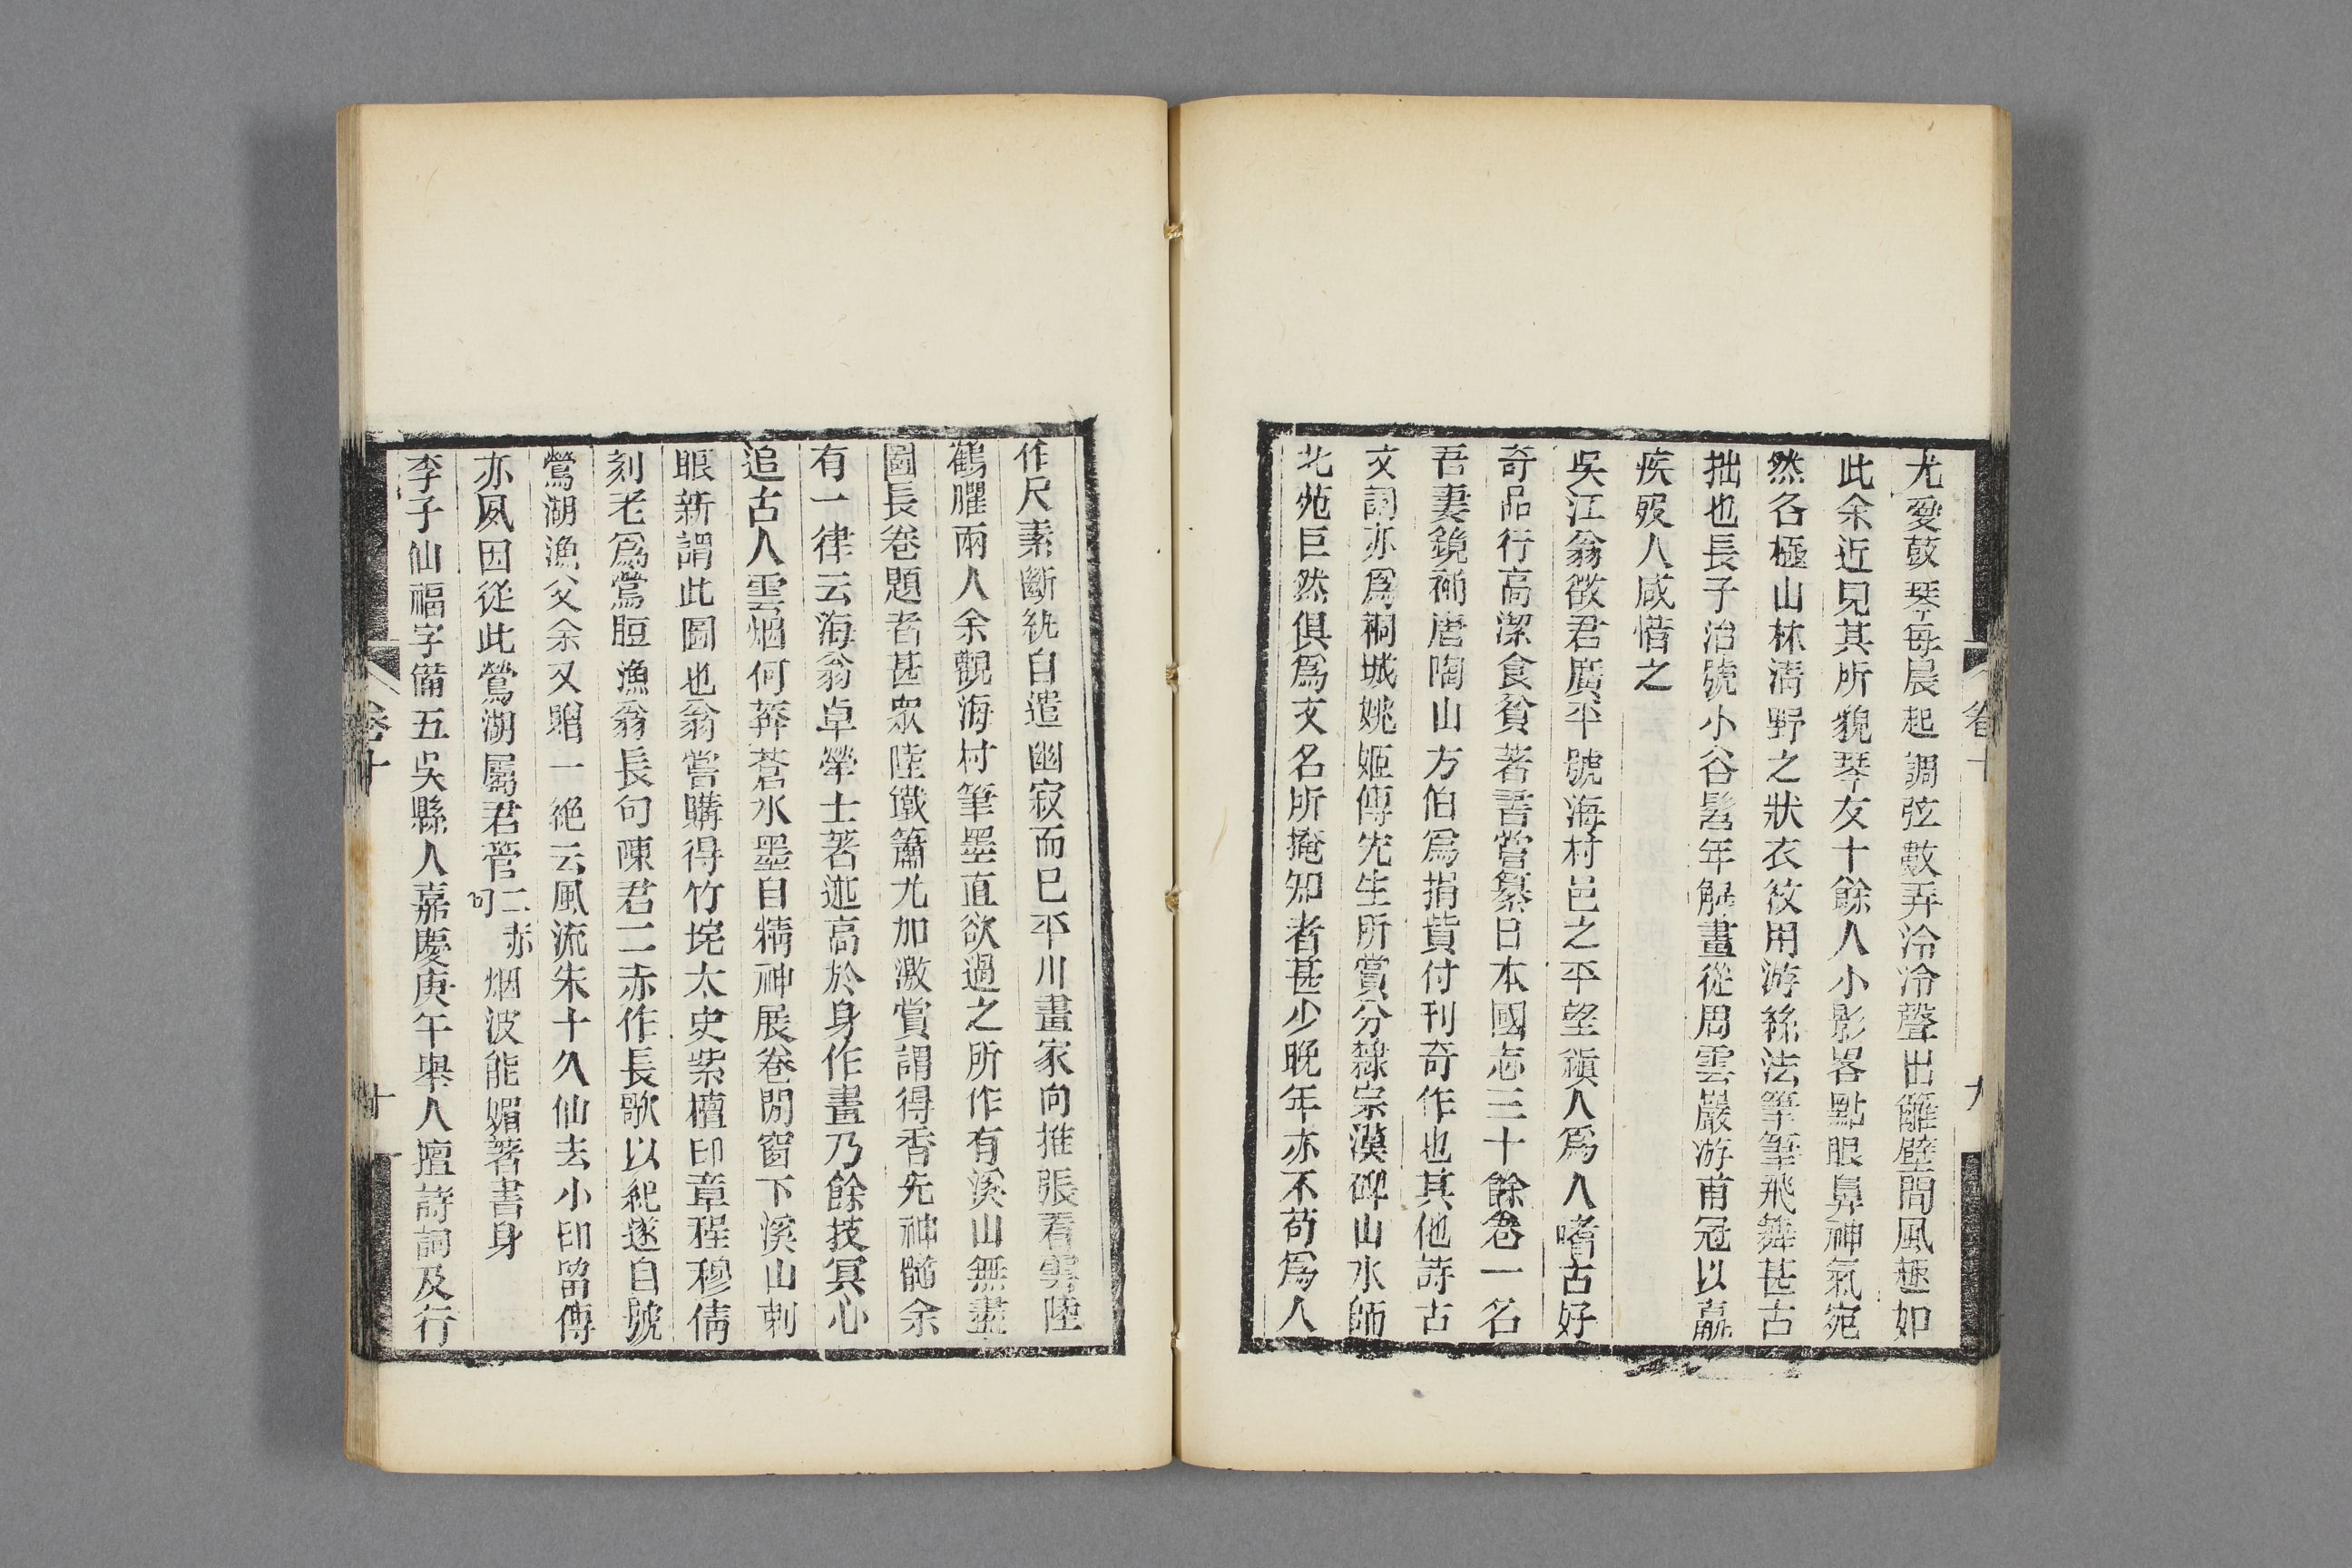 尤愛鼓琴每晨起調弦數弄泠泠聲出籬壁間風趣如
此余近見其所貌琴友十餘人小影畧點眼鼻神氣宛
然各極山林淸野之狀衣紋用游絲法筆筆飛舞甚古
拙也長子治號小谷髫年解畫從周雲巖游甫冠以羸
疾歿人咸惜之
吳江翁徵君廣平號海村邑之平望鎭人爲人嗜古好
奇品行高潔食貧著書嘗纂日本國志三十餘卷一名
吾妻鏡補唐陶山方伯爲捐貲付刊奇作也其他詩古
文詞亦爲桐城姚姬傳先生所賞分隸宗漢碑山水師
北苑巨然俱爲文名所掩知者甚少晚年亦不苟爲人
卷十
九
作尺素斷紈自遣幽寂而已平川畫家向推張看雲陸
鶴臞兩人余觀海村筆墨直欲過之所作有溪山無盡
圖長卷題者甚衆陸鐵簫尤加激賞謂得香光神髓余
有一律云海翁卓犖士著述高於身作畫乃餘技冥心
追古人雲烟何莽蒼水墨自精神展卷閒窗下溪山刺
眼新謂此圖也翁嘗購得竹垞太史紫檀印章程穆倩
刻老爲鶯脰漁翁長句陳君二赤作長歌以紀遂自號
鶯湖漁父余又贈一絶云風流朱十久仙去小印留傳
亦夙因從此鶯湖屬君管二赤句烟波能媚著書身
李子仙福字備五吳縣人嘉慶庚午舉人擅詩詞及行
卷十
十